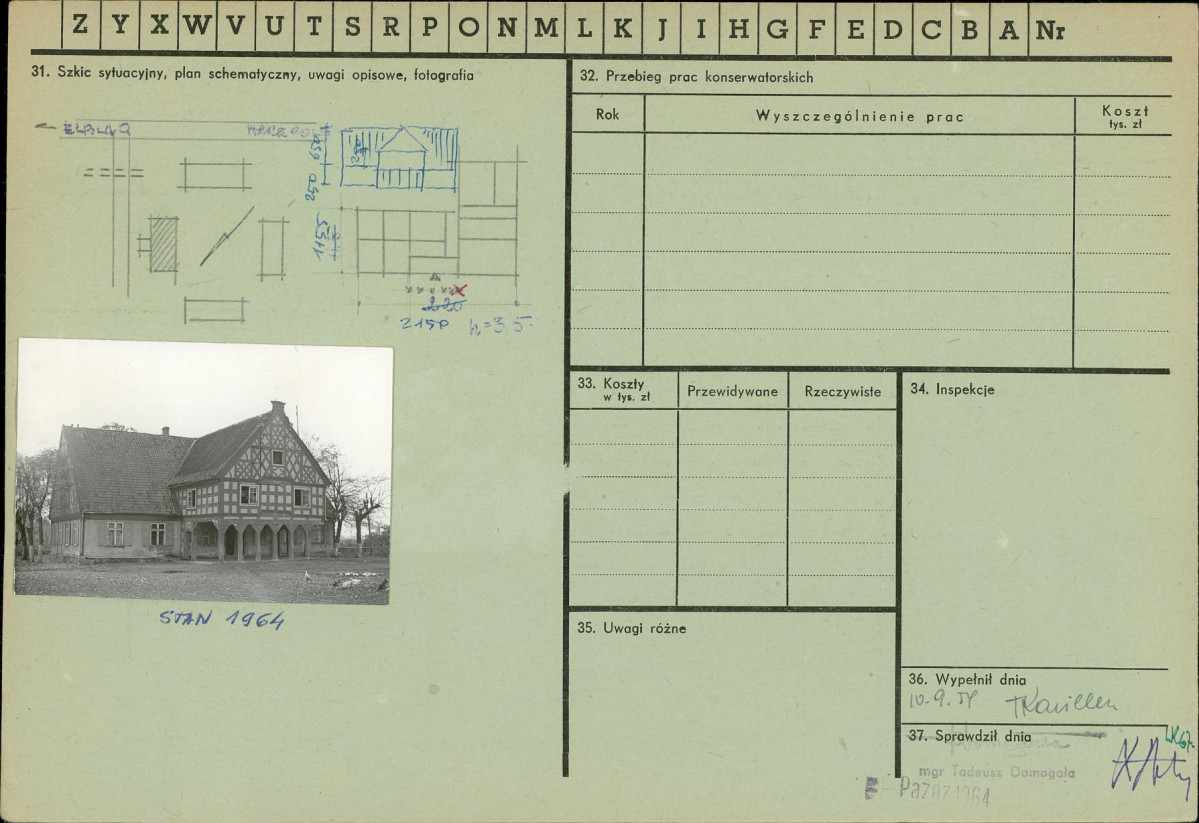 Z Y X W V U T S R P O N M L K J I H G F E D C B A Nr
31. Szkic sytuacyjny, plan schematyczny, uwagi opisowe, fotografia
ELBLĄG
2150
h=3,5
STAN 1964
32. Przebieg prac konserwatorskich
Rok
Wyszczególnienie prac
Koszt
tys. zł
33. Koszty
w tys. zł
Przewidywane
Rzeczywiste
34. Inspekcje
35. Uwagi różne
36. Wypełnił dnia
10.9.59
37. Sprawdził dnia
mgr Tadeusz Domagała
PAŹDZ 1964